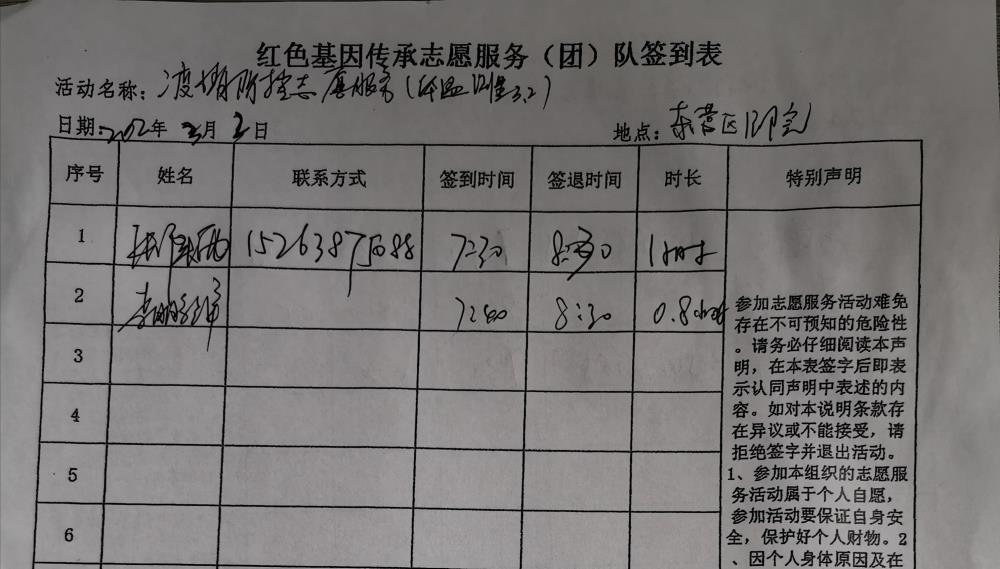 红色基因传承志愿服务（团）队签到表
活动名称：疫情防控志愿服务（体温测量3.2）
日期：202年3月2日 地点：东营区人民医院
序号 姓名 联系方式 签到时间 签退时间 时长 特别声明
1 15263875088 7:30 8:30 1小时
2 李 7:40 8:30 0.8小时
3
4
5
6
参加志愿服务活动难免
存在不可预知的危险性
。请务必仔细阅读本声
明，在本表签字后即表
示认同声明中表述的内
容。如对本说明条款存
在异议或不能接受，请
拒绝签字并退出活动。
1、参加本组织的志愿服
务活动属于个人自愿，
参加活动要保证自身安
全，保护好个人财物。2
、因个人身体原因及在